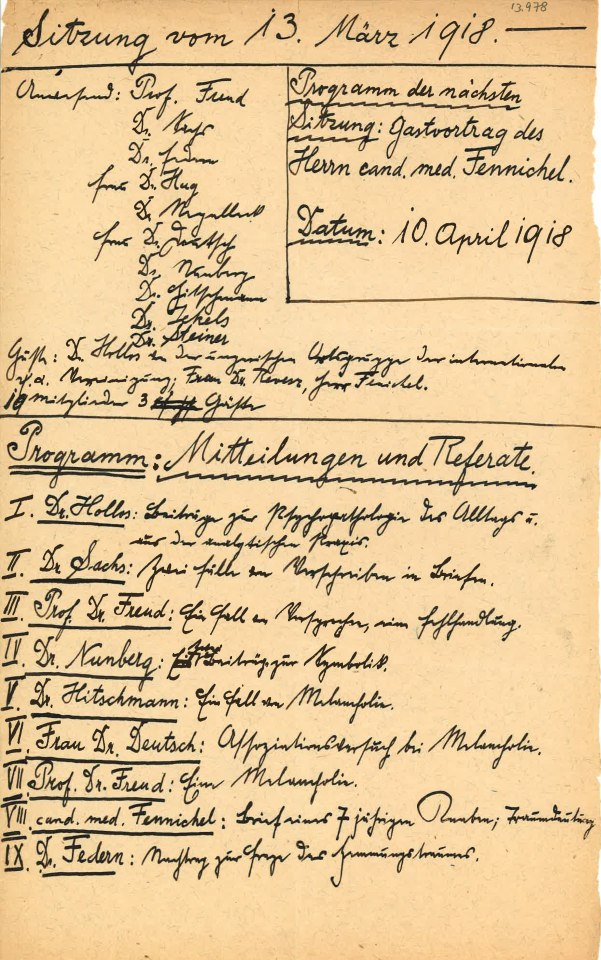 13.978
Sitzung vom 13. März 1918.
Anwesend: Prof. Freud
Dr. Sachs
Dr. Federn
Frau Dr. Hug
Dr.
Frau Dr. Deutsch
Dr. Nunberg
Dr. Hitschmann
Dr. Jekels
Dr. Steiner
Programm der nächsten
Sitzung: Gastvortrag des
Herrn cand. med. Fennichel.
Datum: 10. April 1918
Gäste: Dr. Hollos von der ungarischen Ortsgruppe der internationalen
Vereinigung, Frau Dr. Revesz, Herr Fenichel.
10 Mitglieder 3 Gäste
Programm: Mitteilungen und Referate.
I. Dr. Hollos: Beiträge zur Psychopathologie des Alltags u.
aus der analytischen Praxis.
II Dr. Sachs: Zwei Fälle von Verschreiben in Briefen.
III Prof. Dr. Freud: Ein Fall von Versprechen, eine Fehlhandlung.
IV Dr. Nunberg: Beiträge zur Symbolik.
V Dr. Hitschmann: Ein Fall von Melancholie.
VI Frau Dr. Deutsch: Assoziationsversuch bei Melancholie.
VII Prof. Dr. Freud: Eine Melancholie.
VIII. cand. med. Fennichel: Brief eines 7 jährigen Knaben; Traumdeutung
IX Dr. Federn: Nachtrag zur Frage des Hemmungstraumes.